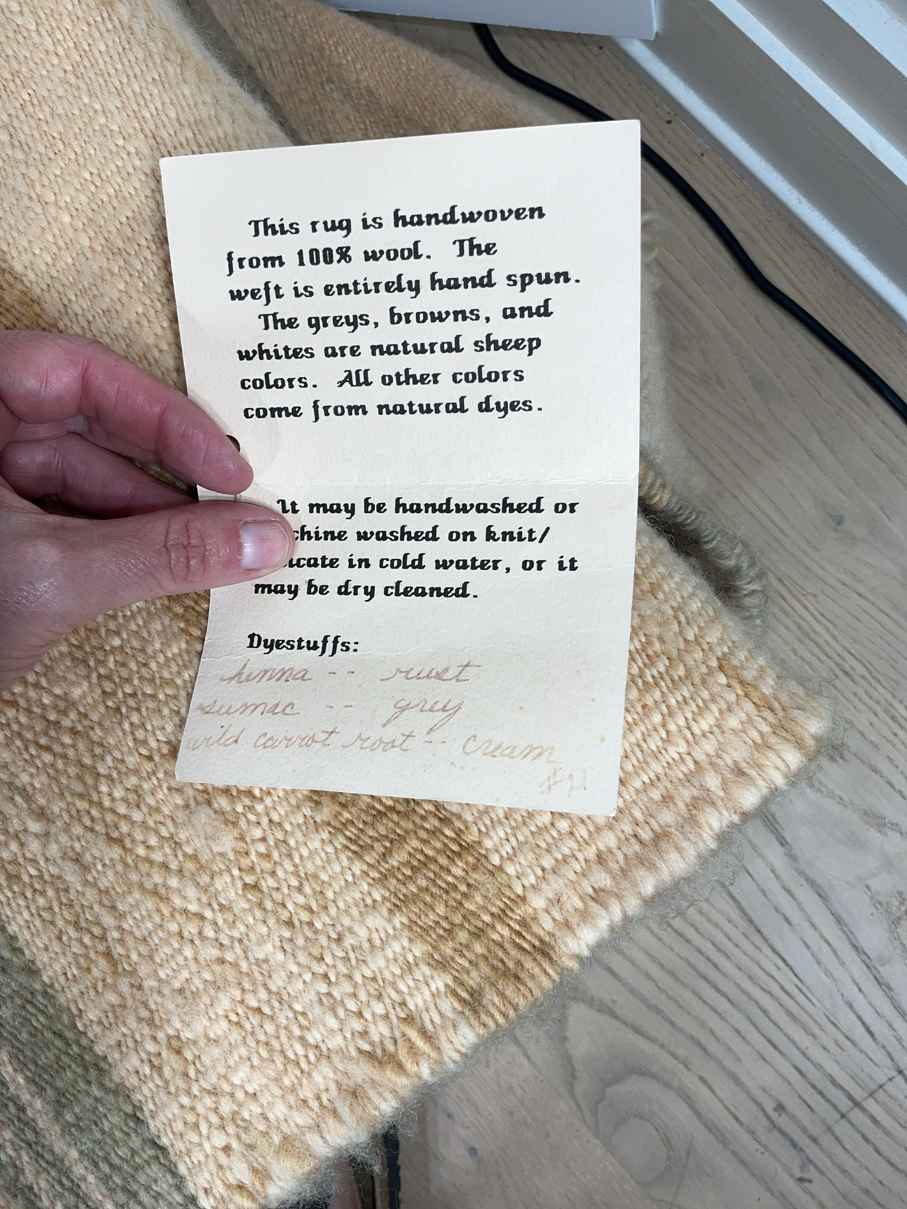 This rug is handwoven
from 100% wool. The
weft is entirely hand spun.
The greys, browns, and
whites are natural sheep
colors. All other colors
come from natural dyes.
It may be handwashed or
chine washed on knit/
icate in cold water, or it
may be dry cleaned.
Dyestuffs:
henna -- rust
sumac -- grey
wild carrot root -- cream